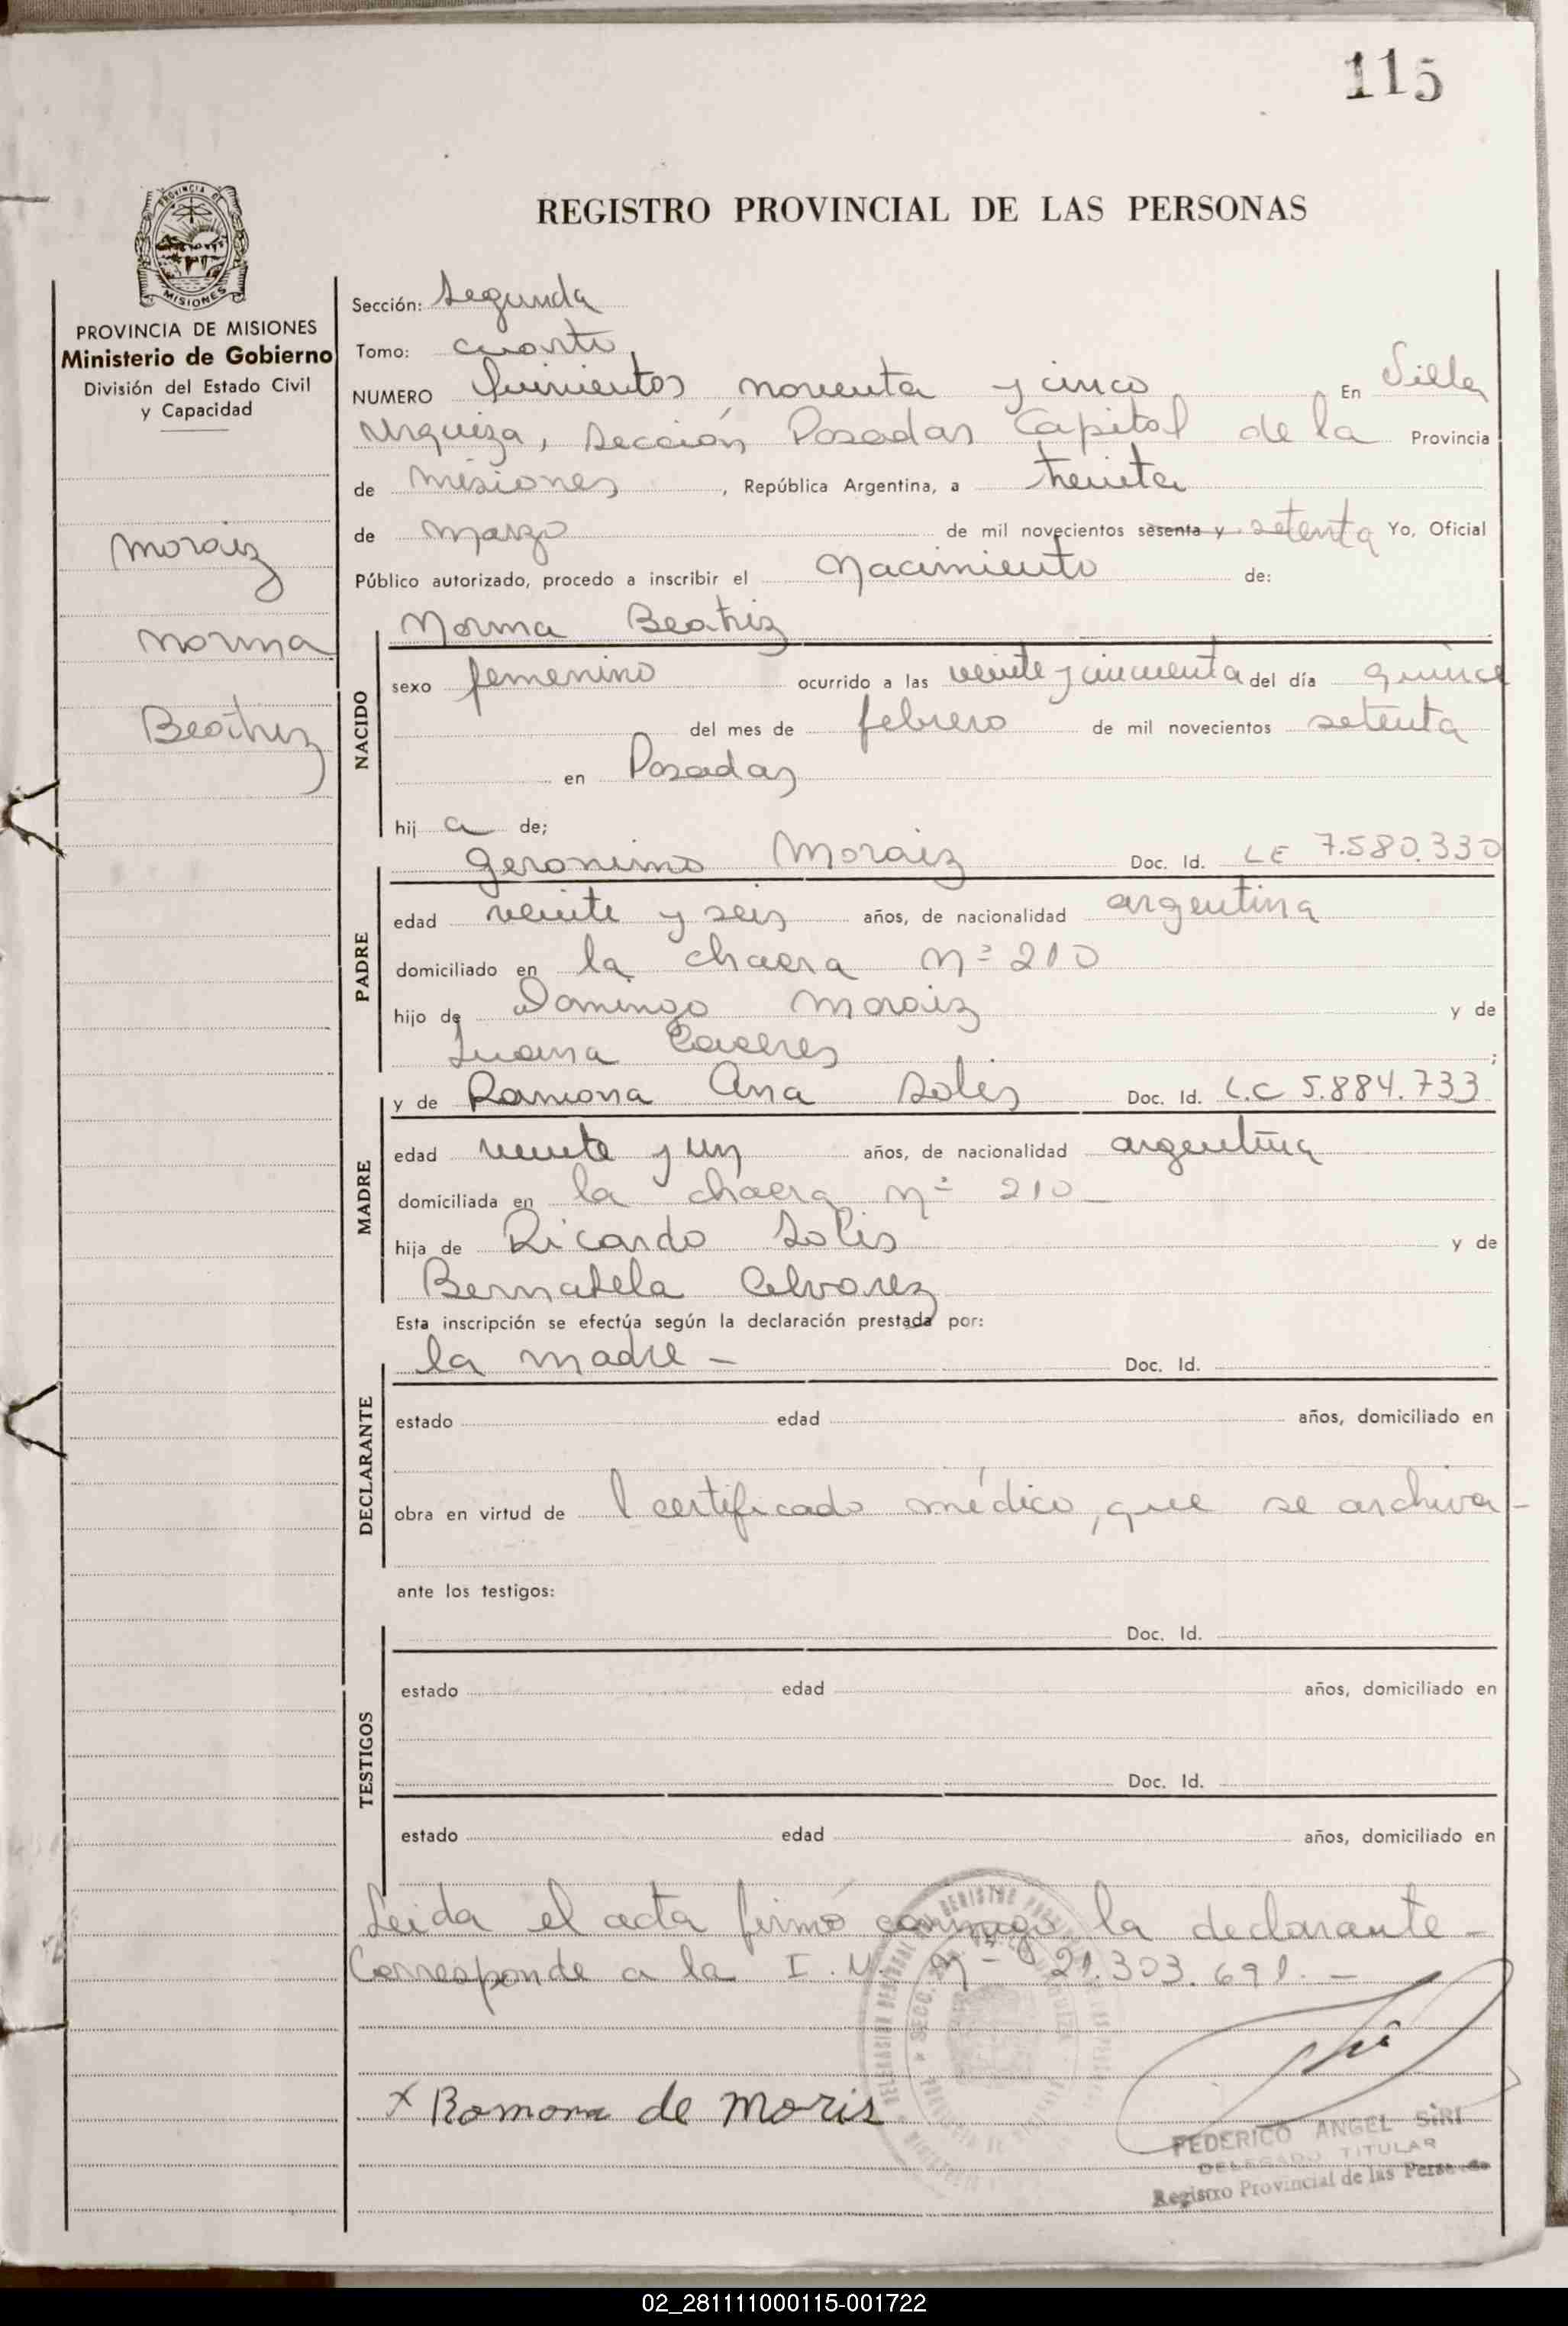 115
PROVINCIA DE
MISIONES
REGISTRO PROVINCIAL DE LAS PERSONAS
PROVINCIA DE MISIONES
Ministerio de Gobierno
División del Estado Civil
y Capacidad
Moraiz
Norma
Beatriz
Sección: Segunda
Tomo: cuarto
NUMERO Quinientos noventa y cinco En Villa
Urquiza, Sección Posadas Capital de la Provincia
de Misiones, República Argentina, a treinta
de marzo de mil novecientos sesenta y setenta Yo, Oficial
Público autorizado, procedo a inscribir el Nacimiento de:
Norma Beatriz
NACIDO
sexo femenino ocurrido a las veinte y cincuenta del día quince
del mes de febrero de mil novecientos setenta
en Posadas
hij a de;
Geronimo Moraiz Doc. Id. LE 7.580.330
PADRE
edad veinte y seis años, de nacionalidad argentina
domiciliado en la chacra Nº 210
hijo de Domingo Moraiz y de
Juana Caceres ;
y de Ramona Ana Solis Doc. Id. L.C 5.884.733
MADRE
edad veinte y un años, de nacionalidad argentina
domiciliada en la chacra Nº 210
hija de Ricardo Solis y de
Bernabela Alvarez
Esta inscripción se efectúa según la declaración prestada por:
la madre - Doc. Id.
DECLARANTE
estado edad años, domiciliado en
obra en virtud de l certificado médico, que se archiva -
ante los testigos:
Doc. Id.
TESTIGOS
estado edad años, domiciliado en
Doc. Id.
estado edad años, domiciliado en
Leida el acta firmó conmigo la declarante -
Corresponde a la I. M. Nº 21.303.691. -
x Ramona de Moris
FEDERICO ANGEL SIRI
DELEGADO TITULAR
Registro Provincial de las Personas
02_281111000115-001722